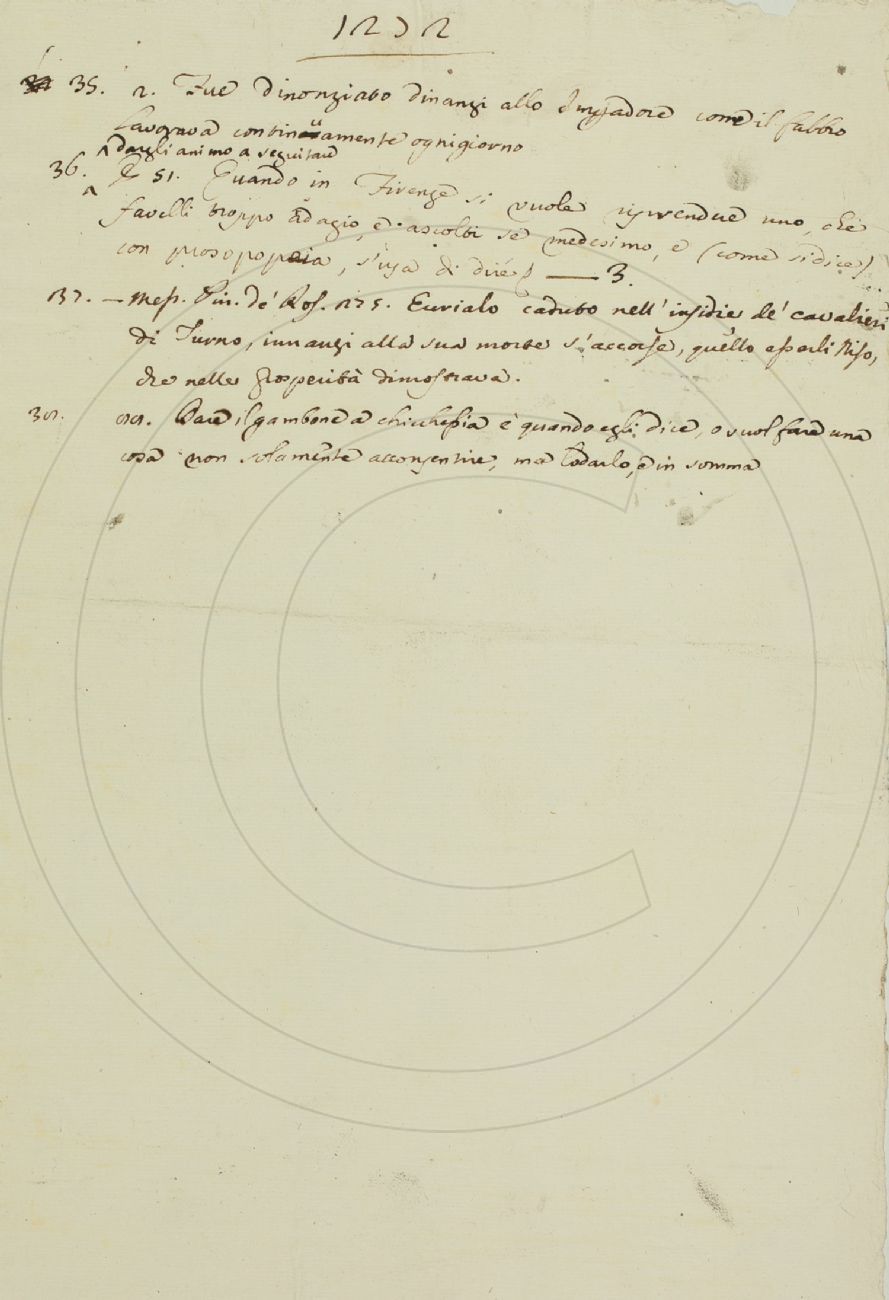 1232
35. 2. Fue dinonziato dinanzi allo Impadore come il fabbro
lavorava continuamente ogni giorno
dargli animo a seguitare
36. E 51. Quando in Firenze si vuole riprendere uno, che
favelli troppo adagio, e ascolti se medesimo, e (come si dice)
con prosopopeia, s'usa di dire) — 3.
137. — Mess. Pin. de' Ros. 175. Eurialo caduto nell'insidie de' cavalieri
di Turno, innanzi alla sua morte s'accorse, quello esserli Niso,
che nelle prosperità dimostrava.
Dare il gambone a chicchessia è quando egli dice, o vuol fare una
cosa non solamente acconsentire, ma lodarlo, e in somma